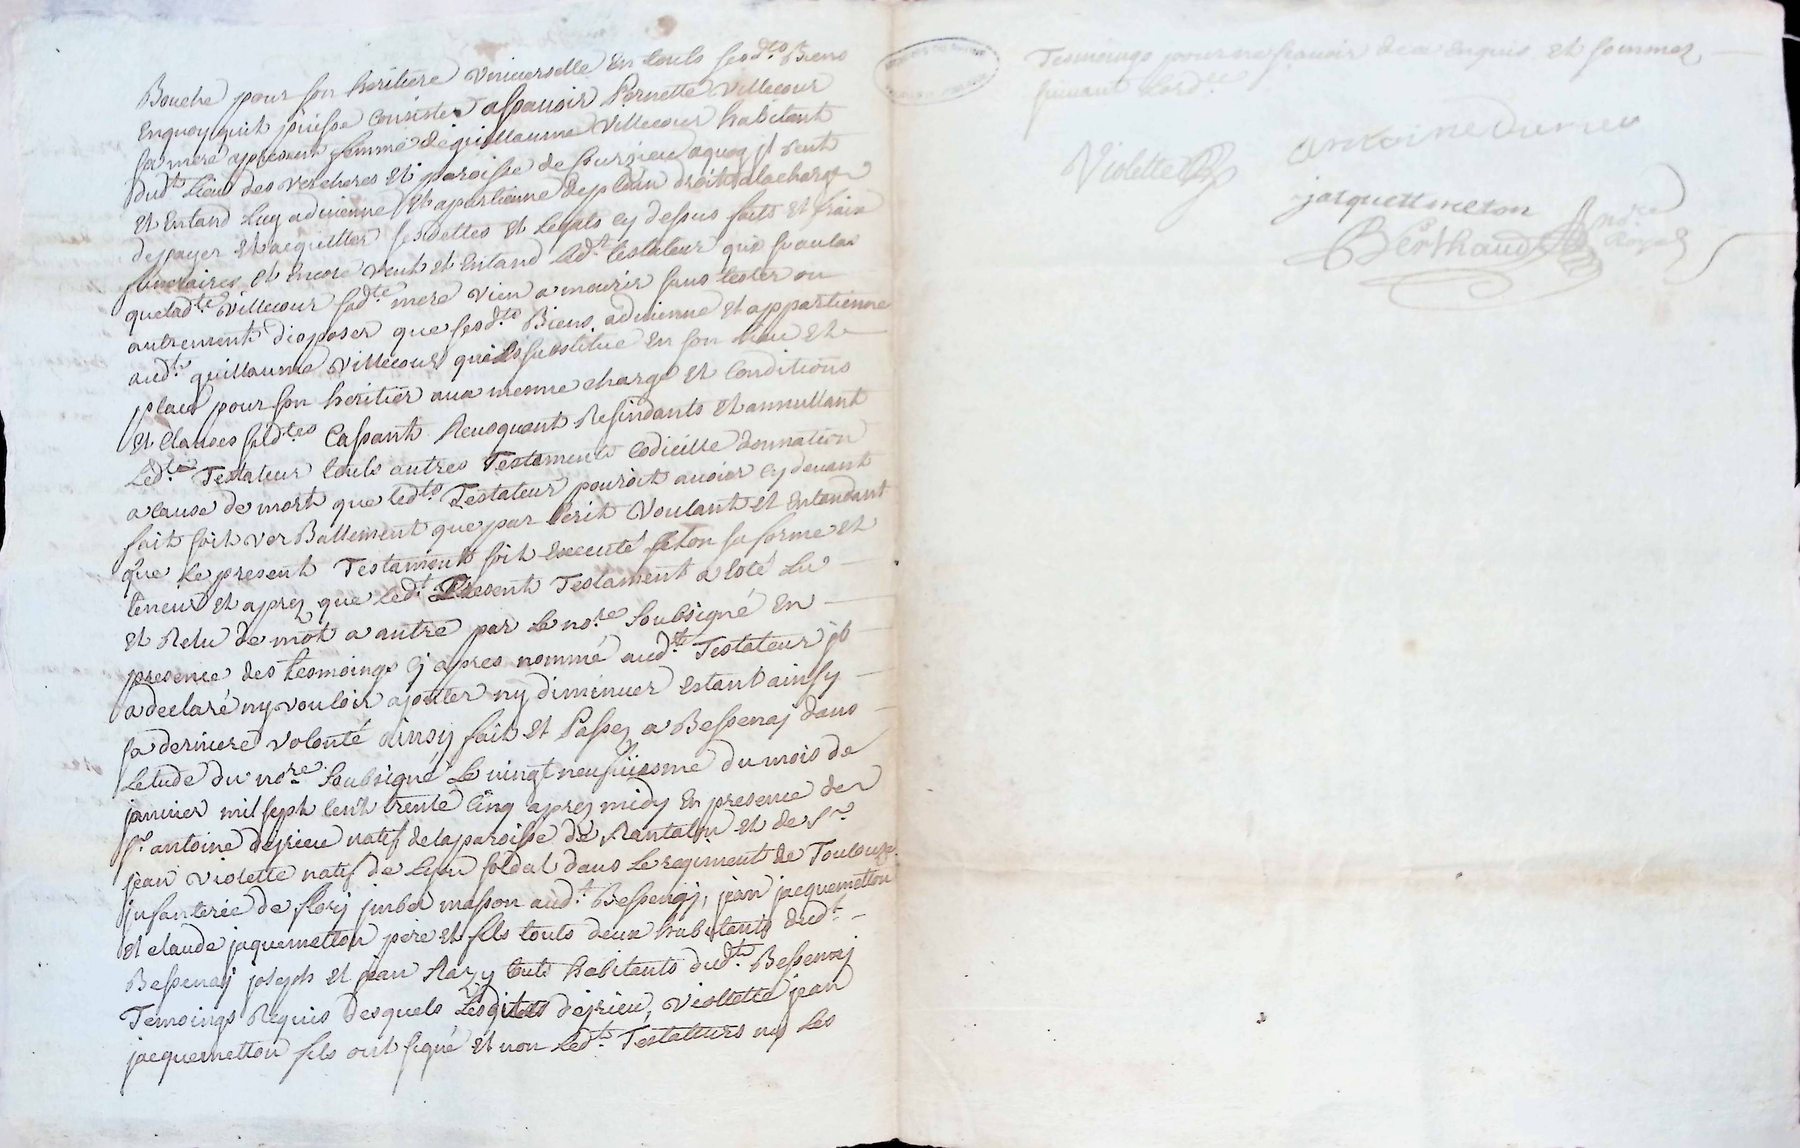 Bouche pour son heritiere universelle en touts sesd.ts Biens
Enquoy quit puisse consister aspauoir Pernette Villecour
sa mere apresent femme de guillaume Villecour habitant
dud.t lieu des Vercheres et paroisse de sourzieu aquoy jl veut
et Entand Luy aduienne et apartienne deplain droit alacharge
depayer et acquitter ses dettes et Legats cy dessus faits et frais
funeraires et encore veut et entand Led.t testateur que sy au cas
que lad.te Villecour sad.te mere vien a mourir sans tester ou
autrement disposer que sesd.ts Biens aduienne et appartienne
aud.t guillaume Villecour quil substitue en son lieu et
place pour son heritier aux mesme charge et Conditions
et Clauses susd.tes Cassant Reuoquant Resindants et annullant
Led.t Testateur touts autres Testaments Codicille donnation
a cause de mort que led.t Testateur pouroit auoior cy deuant
fait soit verBallement que par Ecrit Voulant et Entandant
que Le present Testament soit Executé selon sa forme et
teneur et aprez que Led.t Present Testament a Esté Lu
et Relu de mot a autre par Le no.re Soubsigné En
presence des tesmoings cy apres nommé aud.t Testateur jl
a declaré ny vouloir ajouter ny diminuer estant ainsy
sa derniere volonté ainsy fait et Passez a Bessenaj dans
Letude du no.re Soubsigné Le vingt neufuiesme du mois de
januier mil sept cent trente cinq aprez midy en presence de
s.r antoine dejrieu natif de la paroisse de Rantalon et de s.r
jean violette natif de Lyon soldat dans Le regiment de Toulouze
jnfanterée de flory jmber masson aud.t Bessenaj, jean jacquemetton
et claude jaquemetton pere et fils touts deux habitants dud.t
Bessenaj joseph et jean Razy touts habitants dud.t Bessenaj
Temoings Requis desquels Lesdits dejrieu, violette jean
jacquemetton fils ont signé et non Led.t Testateurs ny les
Tesmoings pour ne sçauoir de ce enquis et sommez
suivant Lord.ce
Violette
antoine durieu
jacquemeton
Berthaud no.re Royal